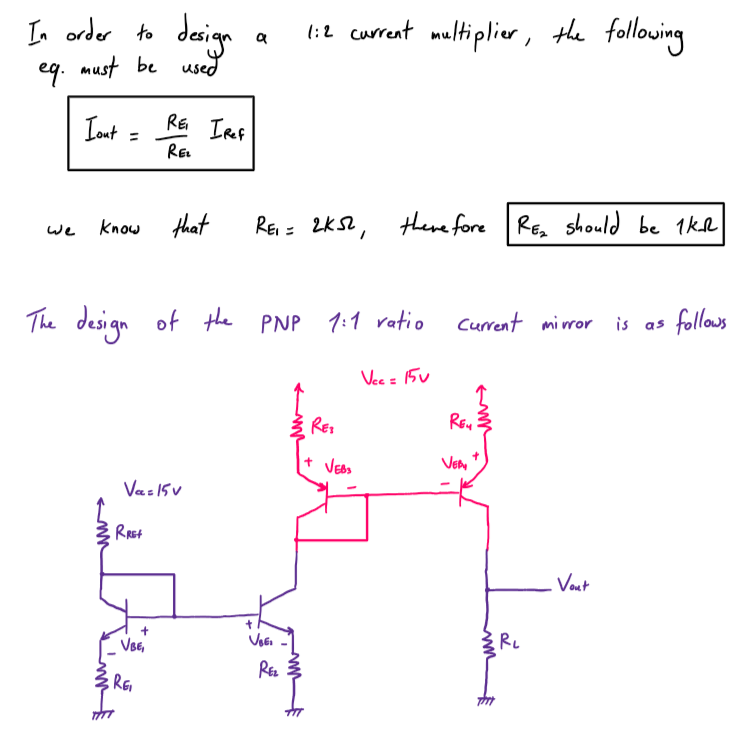 In order to design a 1:2 current multiplier, the following
eq. must be used
Iout = RE1 / RE2 IRef
we know that RE1 = 2KΩ, therefore RE2 should be 1kΩ
The design of the PNP 1:1 ratio current mirror is as follows
Vcc = 15V
RE3
RE4
+ VEB3 -
VEB4 + -
Vcc = 15V
RRef
Vout
+ VBE1 -
+ VBE2 -
RL
RE2
RE1